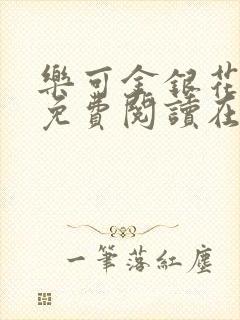 樂可金銀花
免費閱讀在
一筆落紅塵